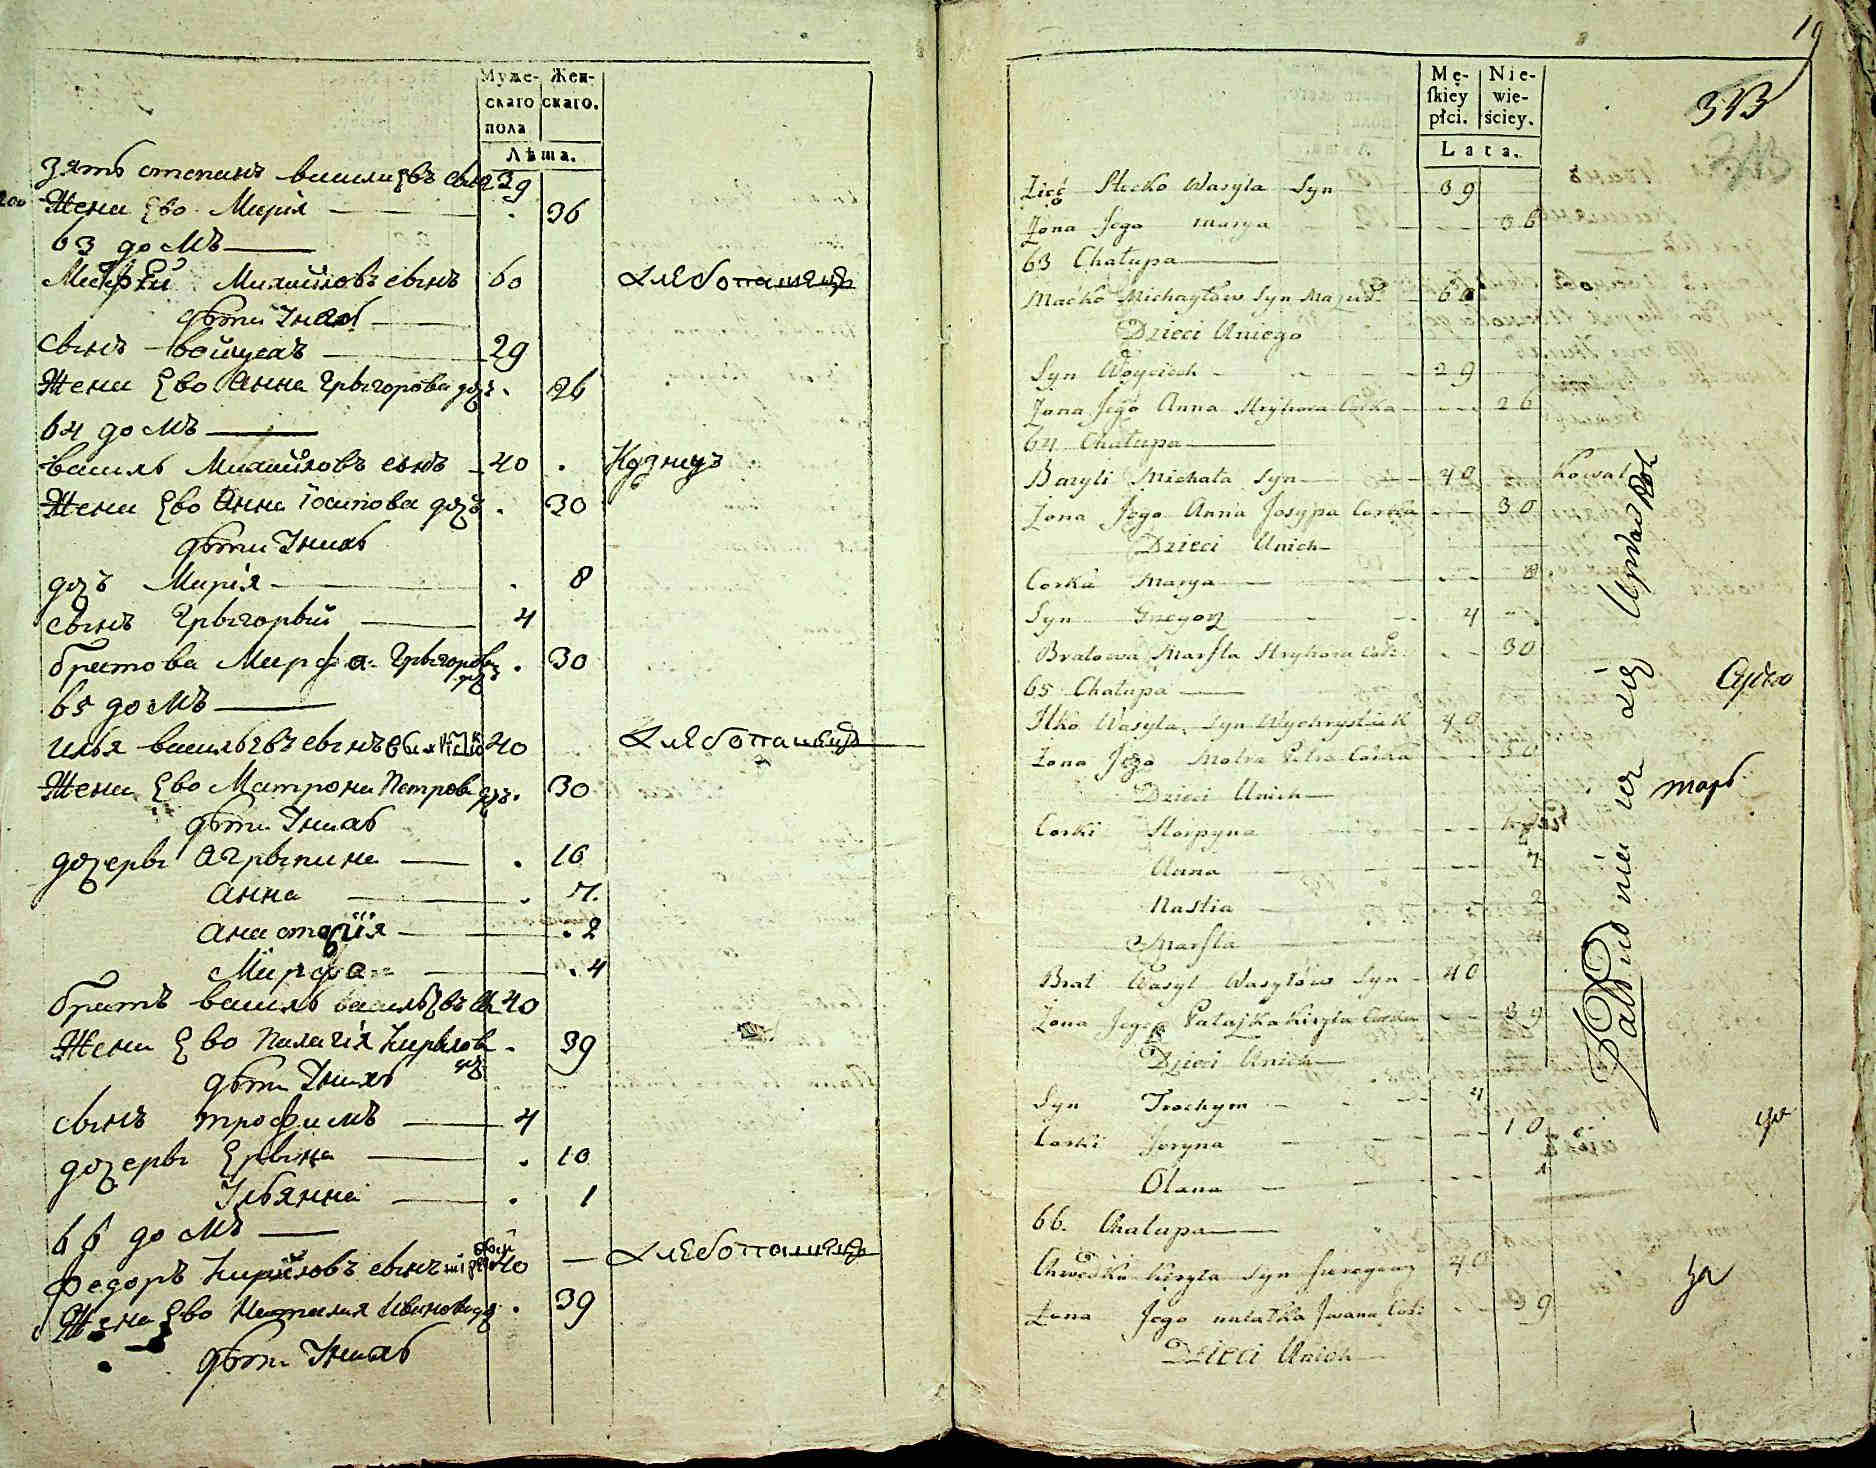 Муже-
скаго
пола
Жен-
скаго.
Лѣта.
зять степанъ васильевъ сынъ 39
Жена Ево Марія 36
63 домъ
Михайловъ сынъ 60 хлебопашецъ
дѣти Унаго
сынъ войцехъ 29
Жена Ево Анна Грыгорова доч. 26
64 домъ
василь Михайловъ сынъ 40 Кузнецъ
Жена Ево Анна Іосипова дочъ 30
дѣти Унихъ
дочъ Марія 8
сынъ Грыгорый 4
братова Марфа Грыгорова дочъ 30
65 домъ
илья васильевъ сынъ 40 хлебопашецъ
Жена Ево Матрона Петрова дочъ 30
дѣти Унихъ
дочеры Агрыпина 16
Анна 7.
Анастасія 2
Марфа 4
братъ василь васильевъ 40
Жена Ево Палагія Кирилова дочъ 39
дѣти Унихъ
сынъ трофимъ 4
дочеры Ерына 10
Ульянна 1
66 домъ
Федоръ Кириловъ сынъ 40 хлебопашецъ
Жена Ево Наталия Иванова доч 39
дѣти Унихъ
19
343
Mę-
skiey
płci.
Nie-
wie-
ściey.
Lata.
Zięć Stecko Wasyla Syn 39
Zona Jego Marya 36
63 Chałupa
Maćko Michayłow Syn 60
Dzieci Uniego
Syn Woyciech 29
Zona Jego Anna Hryhora Corka 26
64 Chałupa
Bazyli Michała Syn 40 Kowal
Zona Jego Anna Josypa Corka 30
Dzieci Unich
Corka Marya 8
Syn Gregory 4
Bratowa Marfta Hryhora Cor. 30
65 Chałupa
Ilko Wasyla Syn Wychrystiuk 40
Zona Jego Motra Petra Corka 30
Dzieci Unich
Corki Horpyna
Anna 7
Nastia 2
Marfta 4
Brat Wasyl Wasylow Syn 40
Zona Jego Pałajka Kiryła Corka 39
Dzieci Unich
Syn Trochym 4
Corki Jeryna 10
Olana 1
66. Chałupa
Chwedko Kiryła Syn 40
Zona Jego Natałka Jwana Cor. 39
Dzieci Unich